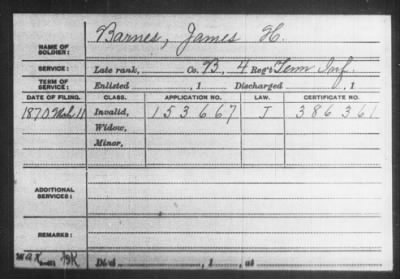 NAME OF SOLDIER: Barnes, James H.
SERVICE: Late rank, Co. B, 4 Reg't Tenn Inf.
TERM OF SERVICE: Enlisted , 1 Discharged , 1
DATE OF FILING. CLASS. APPLICATION NO. LAW. CERTIFICATE NO.
1870 Mch 11 Invalid, 153667 I 386361
Widow,
Minor,
ADDITIONAL SERVICES:
REMARKS:
Died , 1 , at